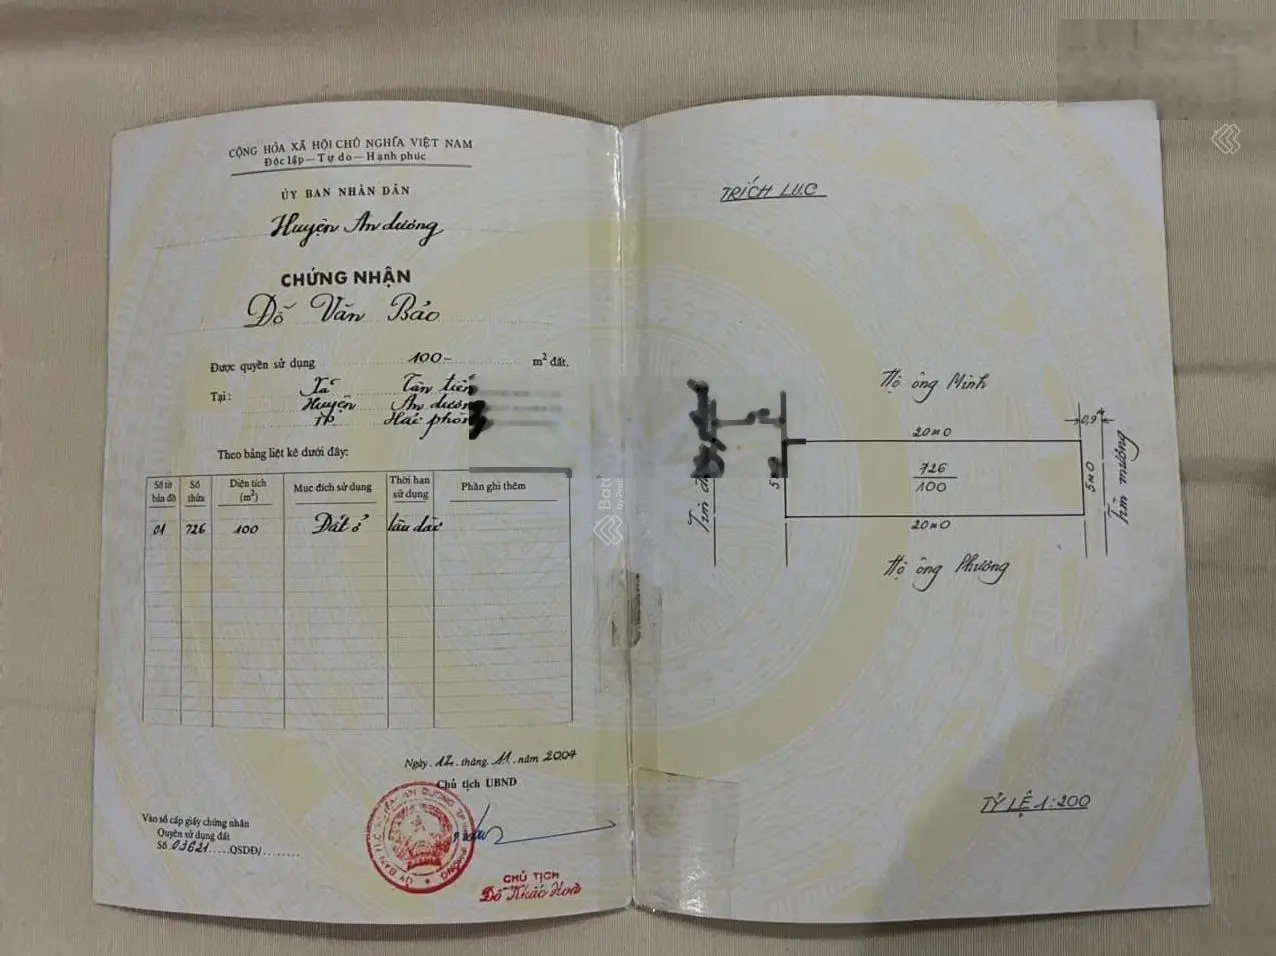 CỘNG HÒA XÃ HỘI CHỦ NGHĨA VIỆT NAM
Độc lập - Tự do - Hạnh phúc
ỦY BAN NHÂN DÂN
Huyện An dương
CHỨNG NHẬN
Đỗ Văn Bảo
Được quyền sử dụng 100 m² đất.
Tại: Xã Tân tiến
Huyện An dương
TP Hải phòng
Theo bảng liệt kê dưới đây:
Số tờ bản đồ Số thửa Diện tích (m²) Mục đích sử dụng Thời hạn sử dụng Phần ghi thêm
01 726 100 Đất ở lâu dài
Ngày 12 tháng 11 năm 2004
Chủ tịch UBND
Vào sổ cấp giấy chứng nhận
Quyền sử dụng đất
Số 03621 QSDĐ/
CHỦ TỊCH
Đỗ Khắc
TRÍCH LỤC
Hộ ông Minh
20m0
0,9
726
100
5m0
Tim mương
Tim
20m0
Hộ ông Phương
TỶ LỆ 1:200